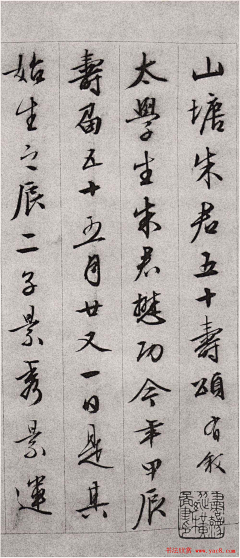 山塘朱君五十壽頌有敘
太學生朱君懋功今年甲辰
壽届五十五月廿又一日是其
始生之辰二子景秀景運